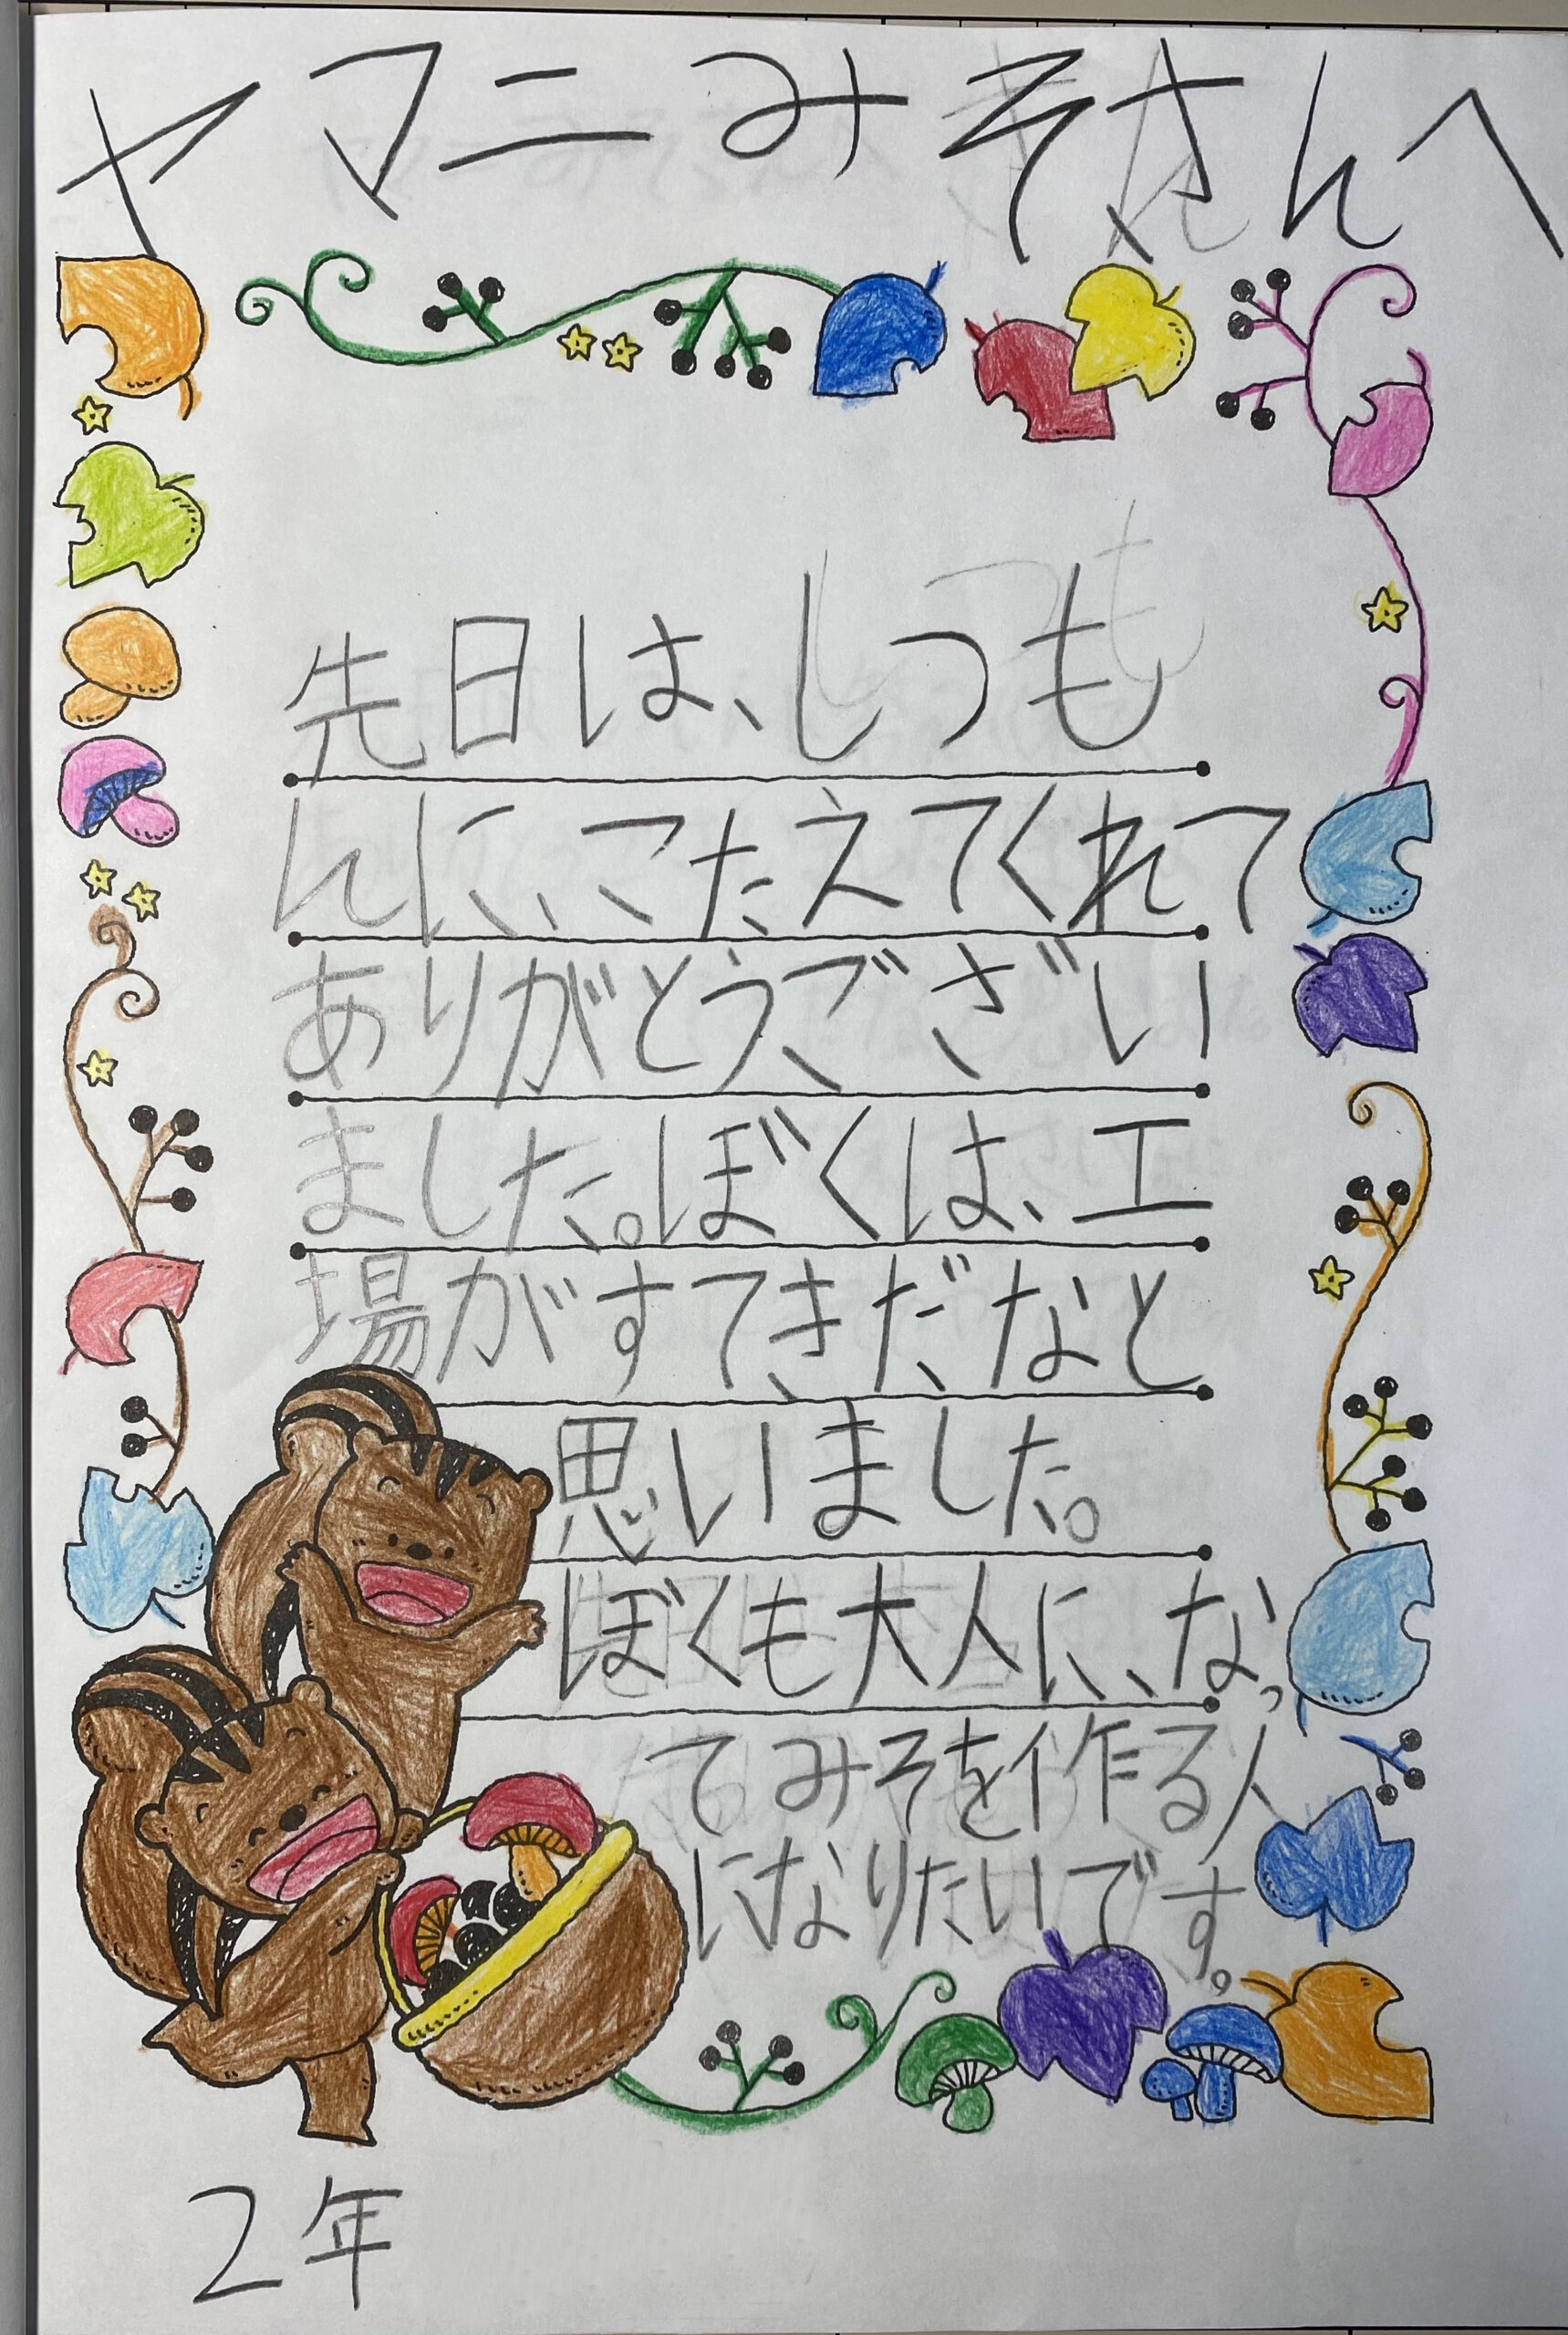 ヤマニみそさんへ
先日は、しつも
んに、こたえてくれて
ありがとう、ござい
ました。ぼくは、工
場がすてきだなと
思いました。
ぼくも大人に、なっ
てみそを作る人
になりたいです。
2年